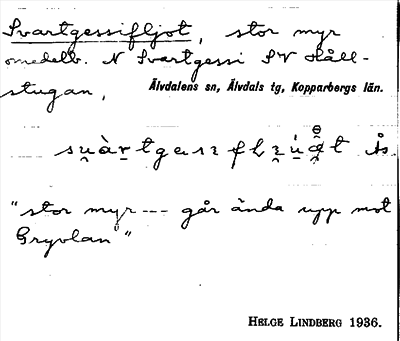 Svartgessifljot, stor myr
omedelb. N Svartgessi SV Håll-
stugan, Älvdalens sn, Älvdals tg, Kopparbergs län.
"stor myr --- går ända upp mot
Gryvlan"
HELGE LINDBERG 1936.